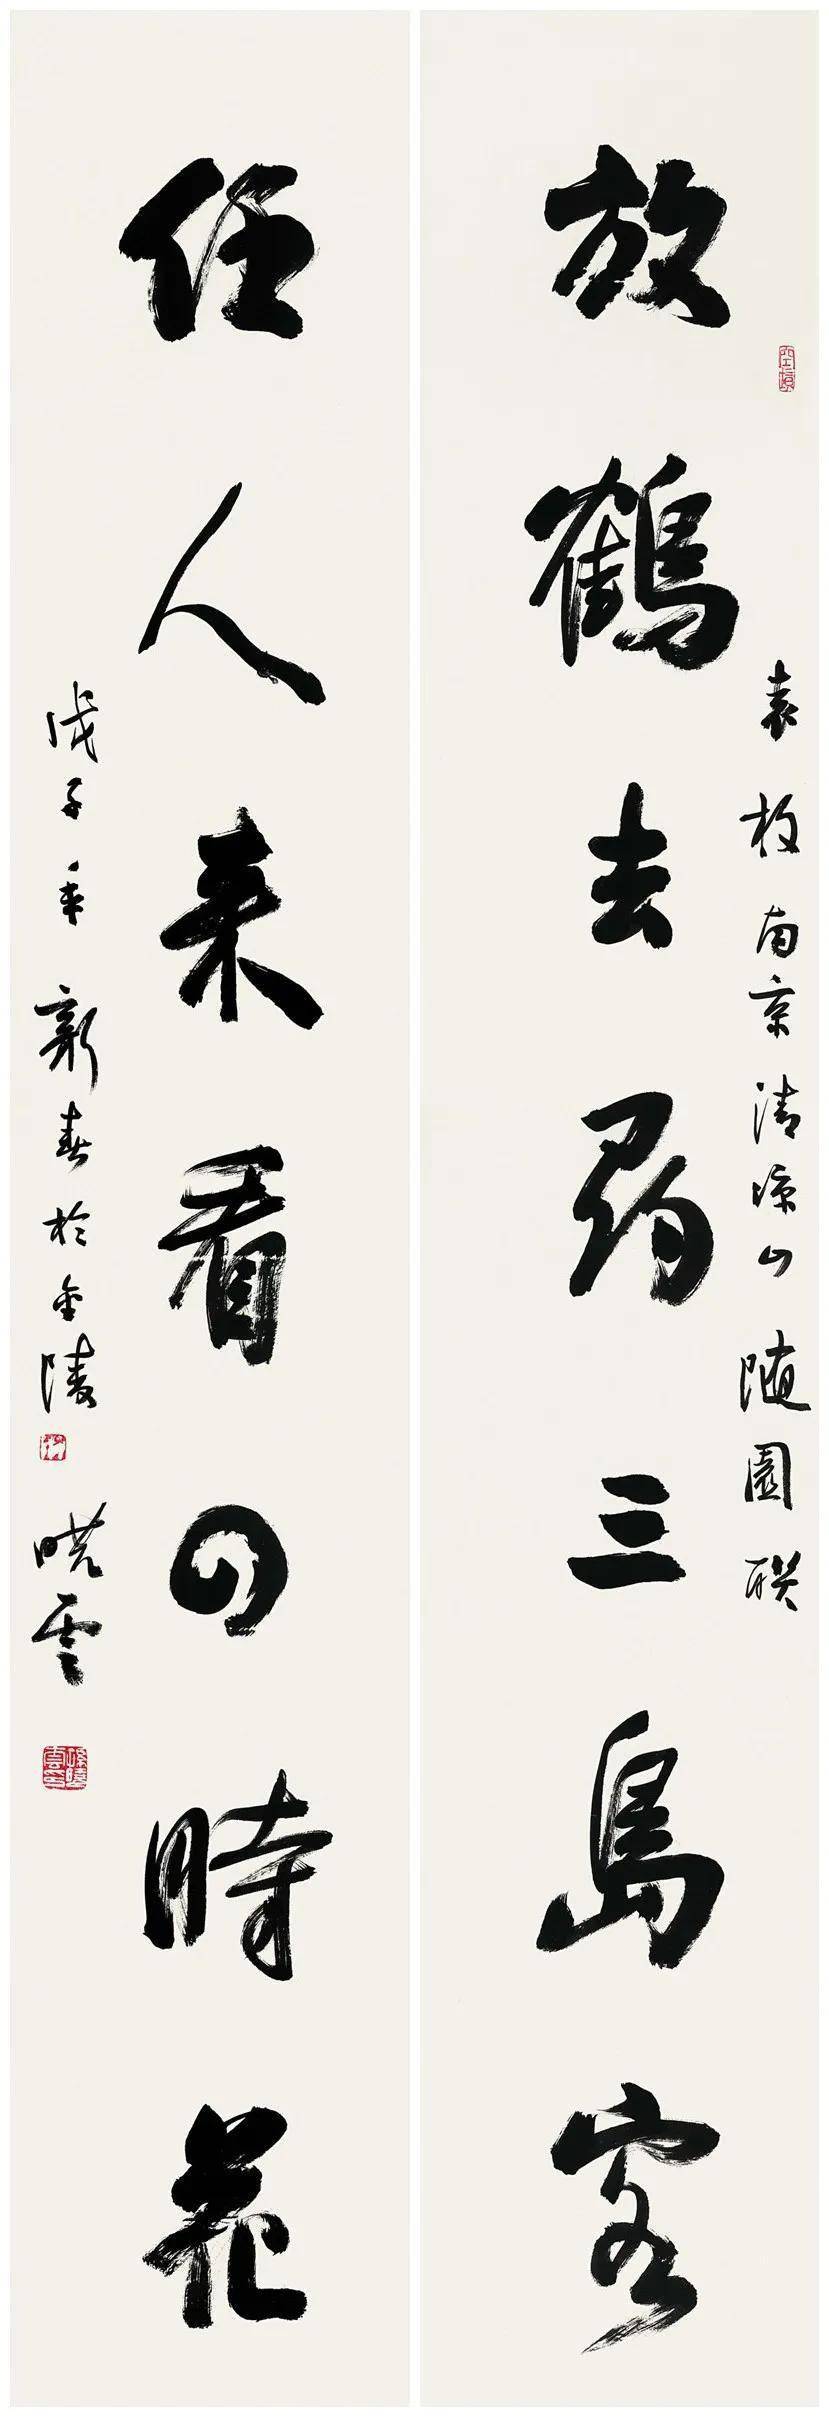 放鶴去尋三島客
袁枚南京清涼山隨園聯
任人来看四時花
戊子年新春於金陵
曉雲